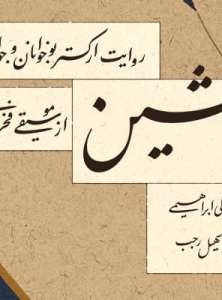 روایت ارکستر نوجوانان و
شین
از موسیقی
ابراهیمی
سهیل رجب